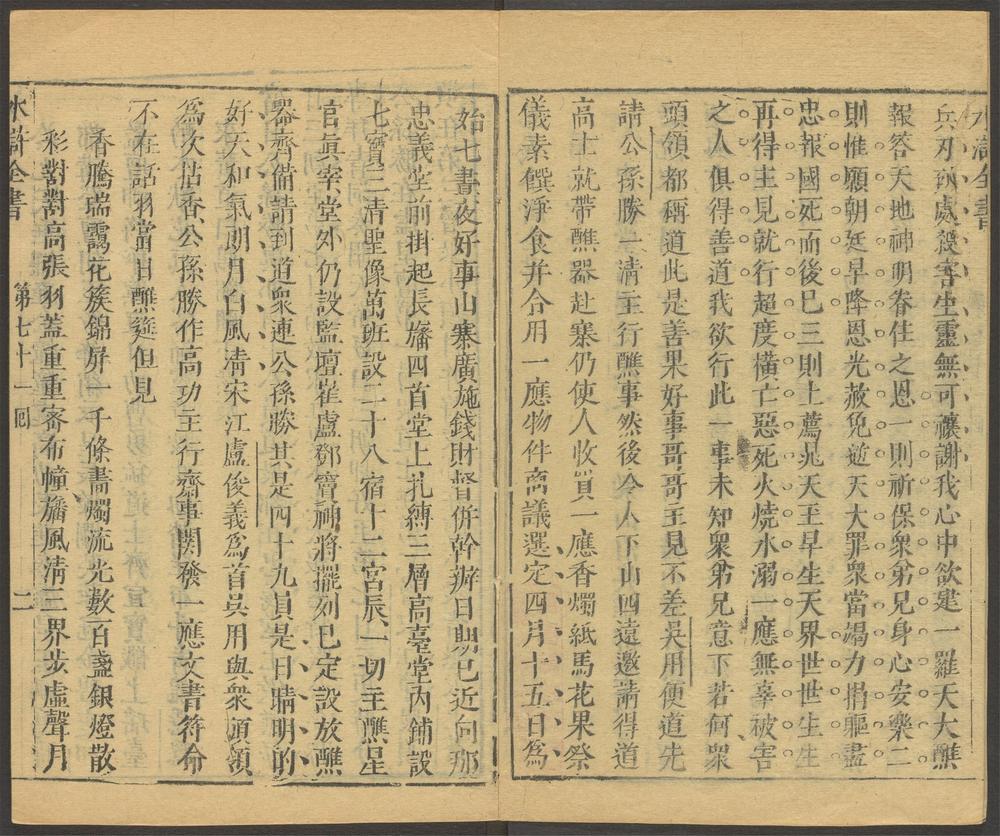 水滸全書
兵刃到處殺害生靈無可禳謝我心中欲建一羅天大醮
報答天地神明眷佑之恩一則祈保衆弟兄身心安樂二
則惟願朝廷早降恩光赦免逆天大罪衆當竭力捐軀盡
忠報國死而後已三則上薦晁天王早生天界世世生生
再得主見就行超度橫亡惡死火燒水溺一應無辜被害
之人俱得善道我欲行此一事未知衆弟兄意下若何衆
頭領都稱道此是善果好事哥哥主見不差吳用便道先
請公孫勝一清主行醮事然後令人下山四遠邀請得道
高士就帶醮器赴寨仍使人收買一應香燭紙馬花果祭
儀素饌淨食并合用一應物件商議選定四月十五日為
始七晝夜好事山寨廣施錢財督併幹辦日期已近向那
忠義堂前掛起長旛四首堂上扎縛三層高臺堂內鋪設
七寶三清聖像萬班設二十八宿十二宮辰一切主醮星
官眞宰堂外仍設監壇崔盧鄧竇神將擺列已定設放醮
器齊備請到道衆連公孫勝其是四十九員是日晴明的
好天和氣朗月白風清宋江盧俊義爲首吳用與衆頭領
爲次拈香公孫勝作高功主行齋事関發一應文書符命
不在話羽當日醮筵但見
香騰瑞靄花簇錦屏一千條畵燭流光數百盞銀燈散
彩對對高張羽蓋重重密布幢旛風淸三界步虛聲月
水滸全書　第七十一囘　二